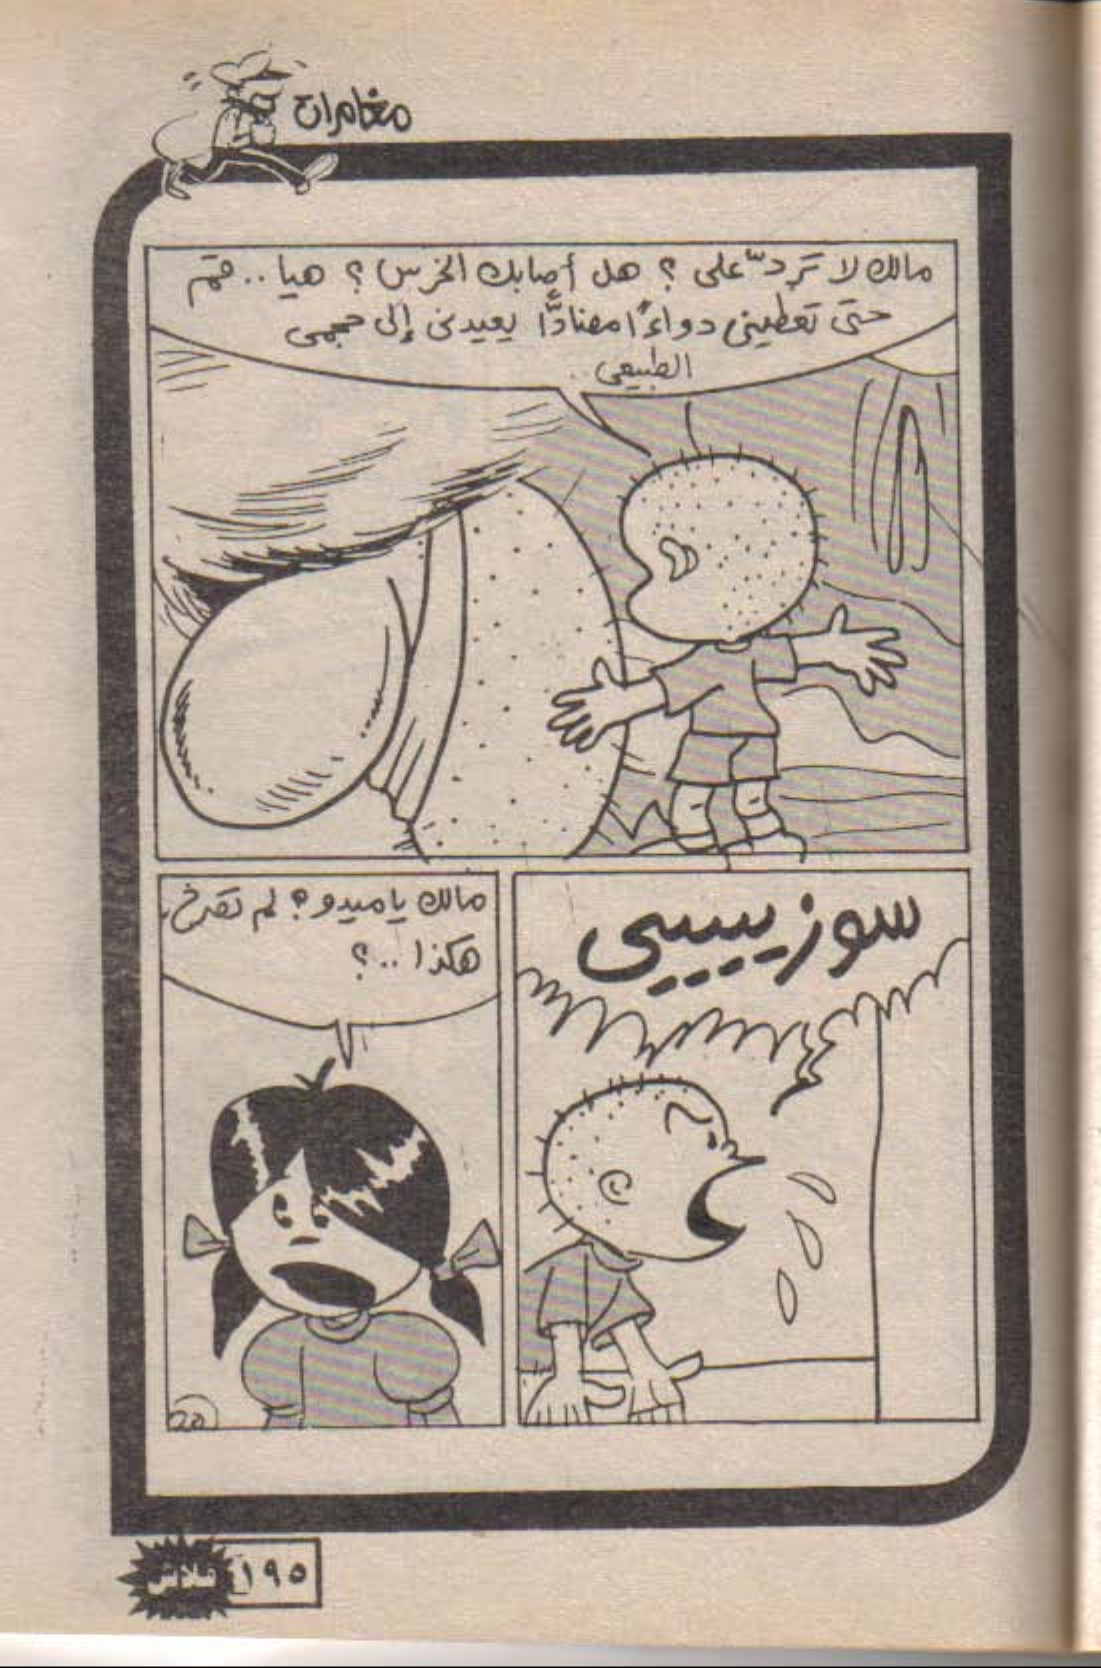 مغامرات
مالك لا تَرُدّ على ؟ هل أصابك الخرس ؟ هيا .. قم
حتى تعطينى دواءً مضادًّا يعيدنى إلى حجمى
الطبيعى ..
سوزيييسى
مالك ياميدو ؟ لم تصرخ
هكذا ..؟
20
فلاش ١٩٥